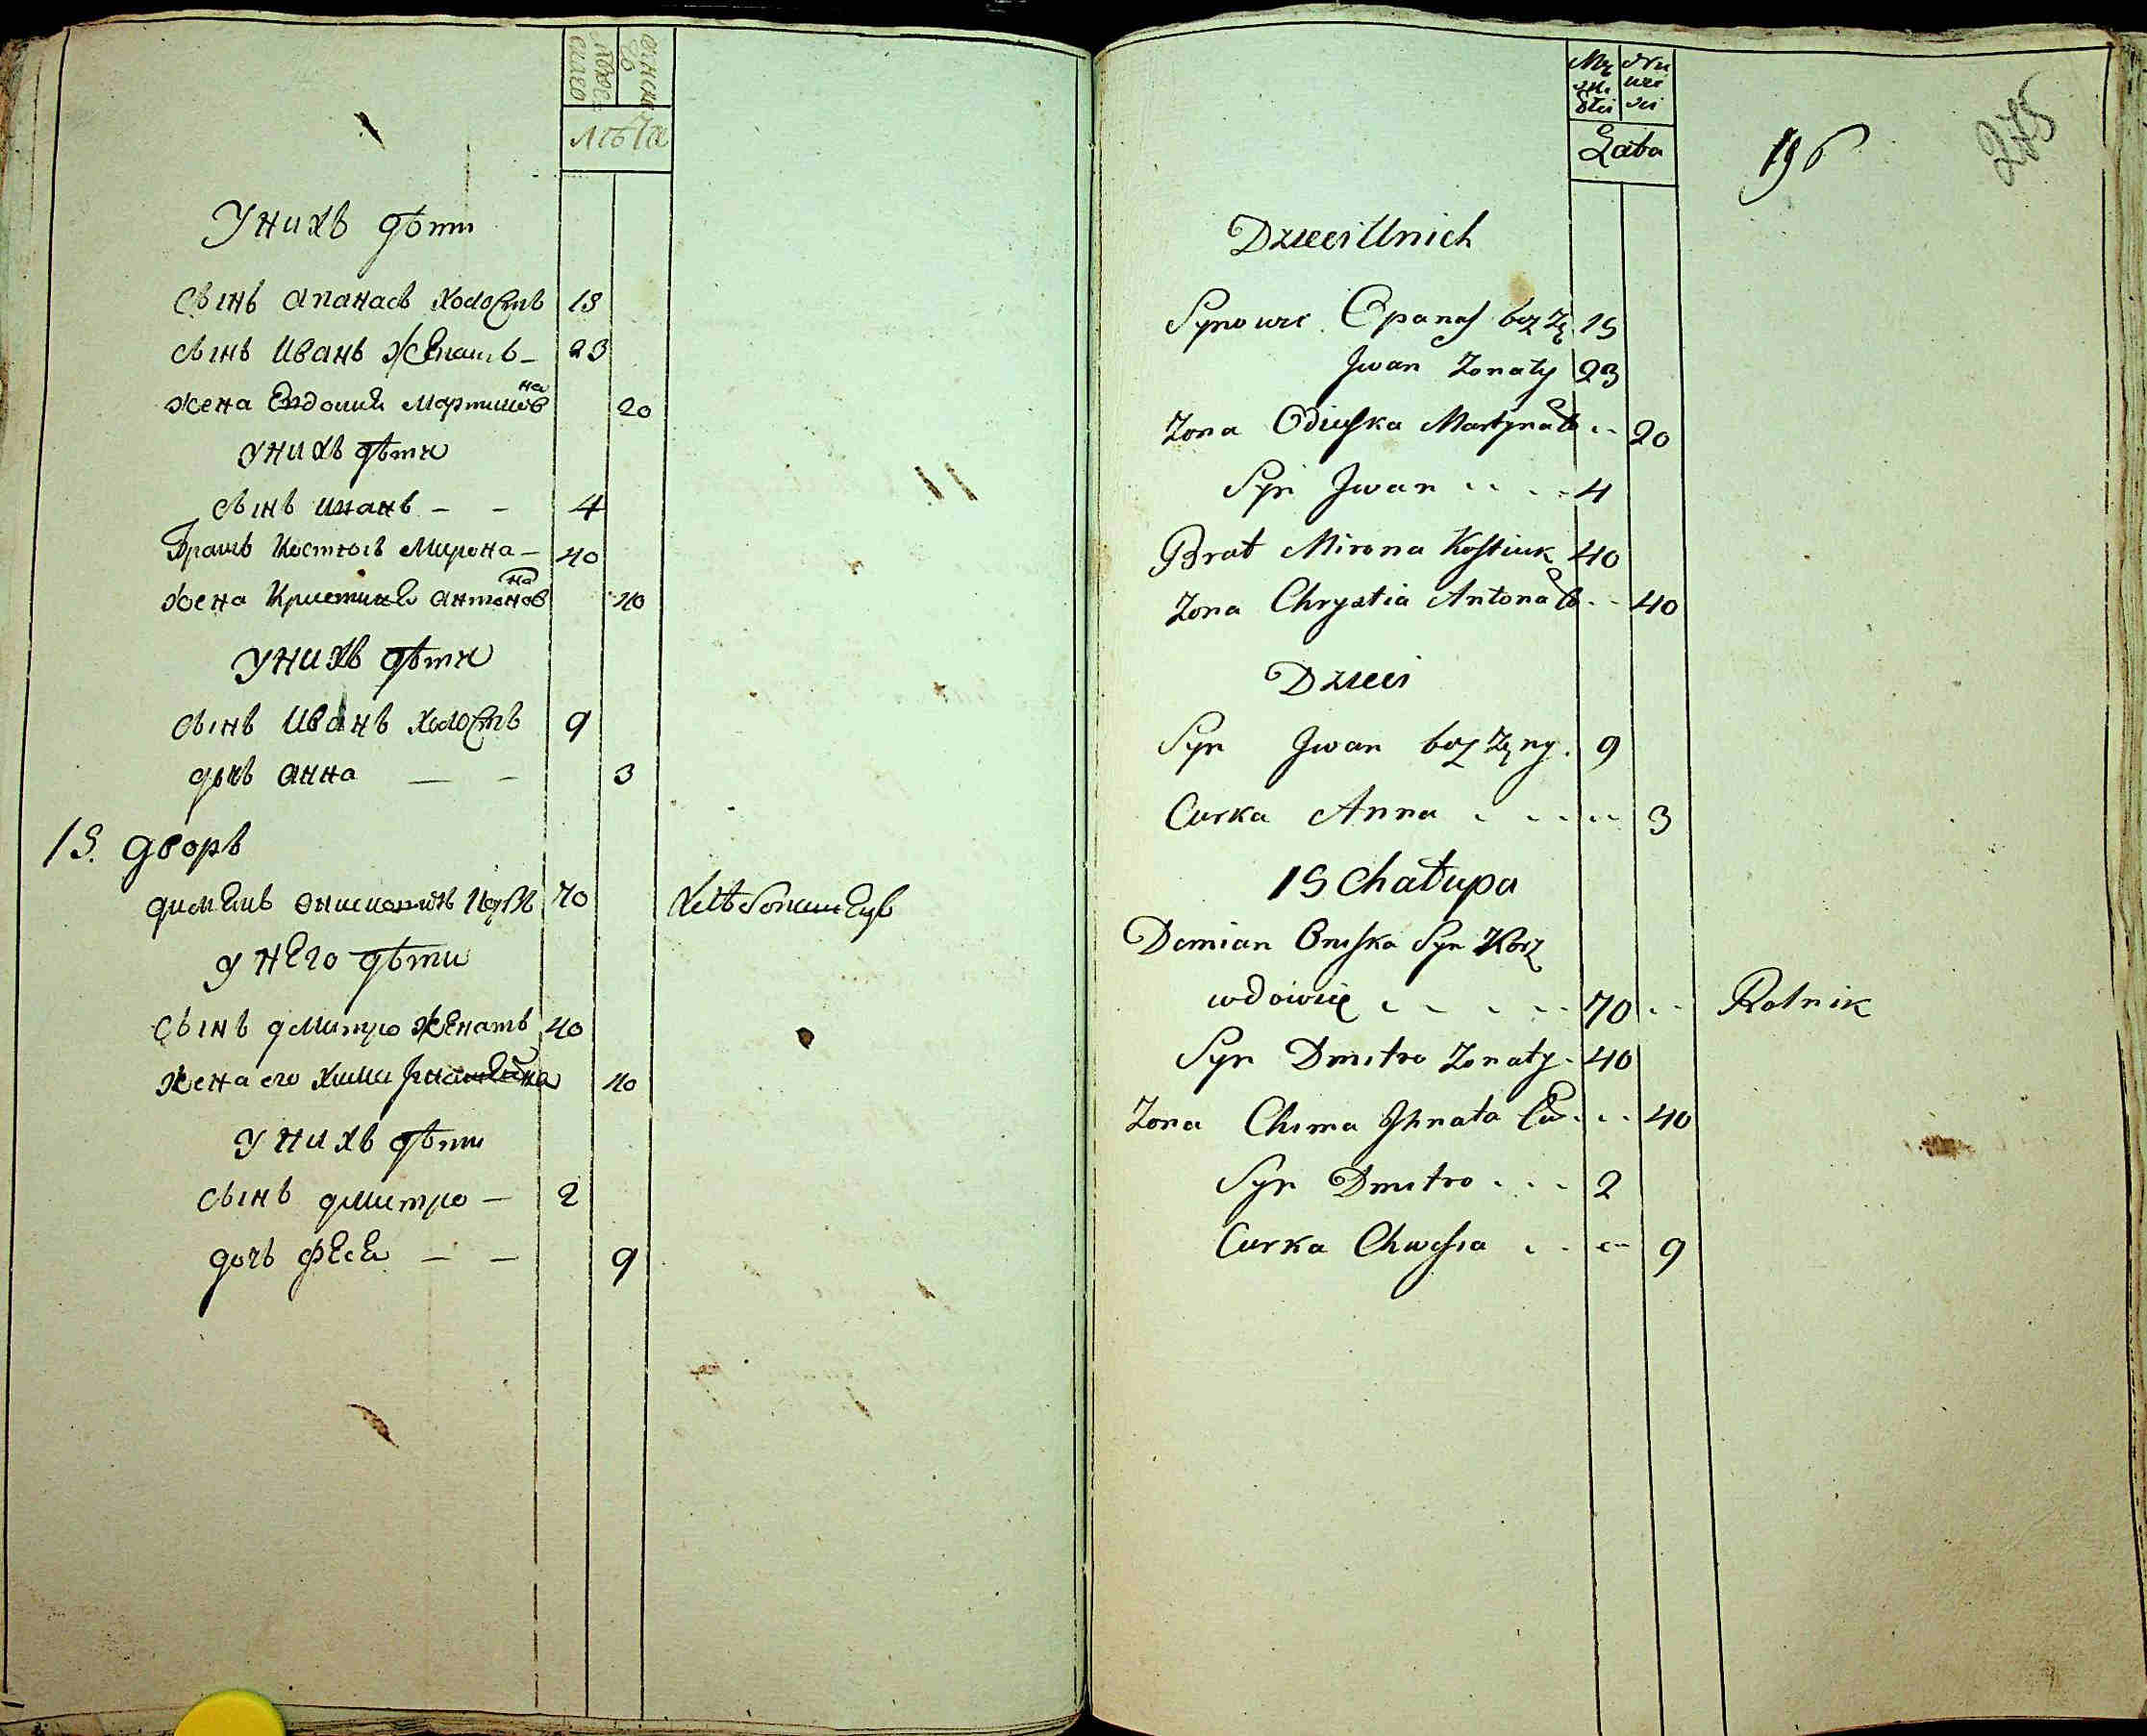 лѣта
У нихъ дѣти
сынъ Апанасъ холостъ 15
сынъ Иванъ женатъ 23
жена Евдокия Мартинов на 20
у нихъ дѣти
сынъ Иванъ - - 4
Братъ Костюкъ Мирона - 40
жена Кристина Антонов на 40
у нихъ дѣти
сынъ Иванъ холостъ 9
дочь Анна - - 3
15. дворъ
70 Хлѣбопашецъ
у него дѣти
сынъ Дмитро женатъ 40
жена его Хима 40
у нихъ дѣти
сынъ Дмитро - 2
дочь Феся - - 9
275
196
Mę zki Ołci
Łata
Dzieci U nich
Synowie Opanas bez Zę 15
Jwan Zonaty 23
Zona Odiuska Martyna Có .. 20
Syn Jwan .. .. 4
Brat Mirona Kostiuk 40
Zona Chrystia Antona Có .. 40
Dzieci
Syn Jwan bez Zęny. 9
Curka Anna . . .. .. 3
15 Chałupa
Demian Oniska Syn Korz
wdowiec . . . .. 70 .. Rolnik
Syn Dmitro Zonaty . 40
Zona Chima Jhnata Có . .. 40
Syn Dmitro . . . 2
Curka Chwesia . . .. 9